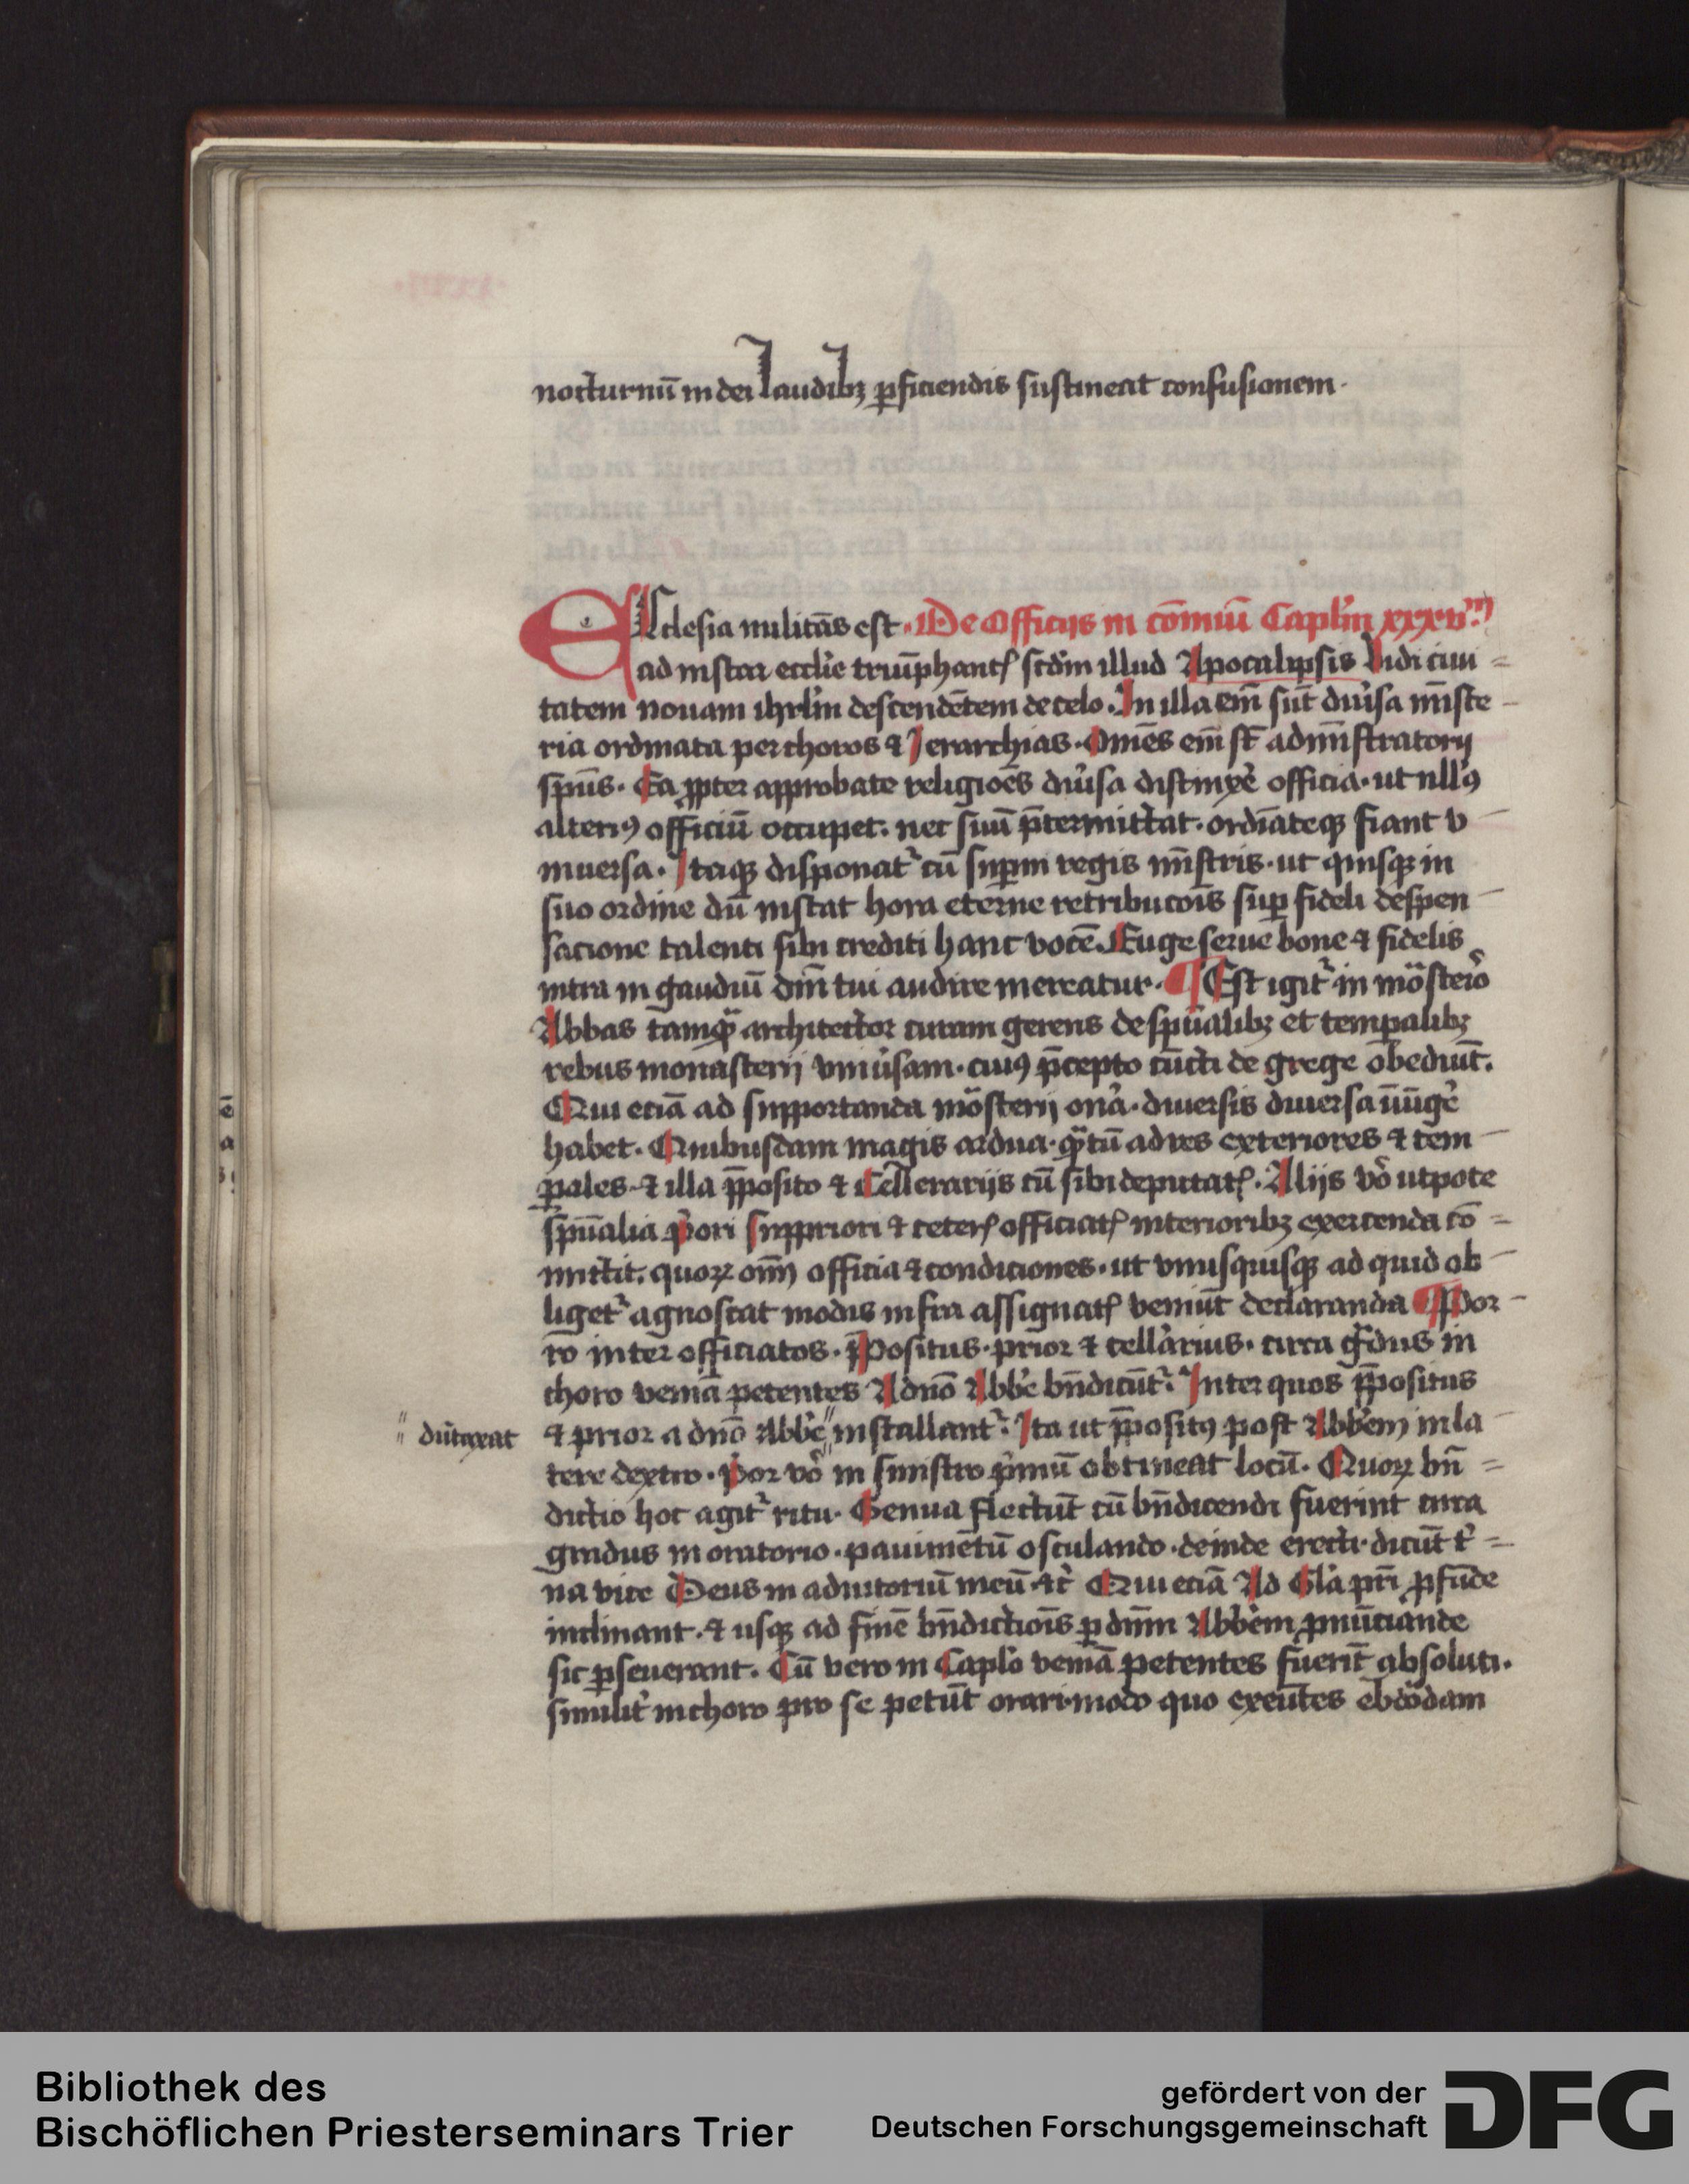 nocturnū in dei laudibꝫ ꝑficiendis sustineat confusionem·
Ecclesia militās est· De Officijs in cōmuū Capl'm xxxvᵐ
ad instar eccl'ie triūphantꝭ scd'm illud Apocalipsis Vidi ciui=
tatem nouam ihrl'm descendētem de celo. In illa em̄ sūt diu'sa m̄iste-
ria ordinata per choros ⁊ Jerarchias. Om̄es em̄ st̄ admīstratorij
sp̄us. Ea ꝓpter approbate religiōes diu'sa distinxe͛ officia· ut nllꝰ
alteriꝰ officiū occupet· nec suū p̄termittat· ordīateqꝫ fiant v-
niuersa. Itaqꝫ disponat᷑ cū suꝑni regis mīstris· ut quisqꝫ in
suo ordine dū instat hora eterne retribucōis suꝑ fideli dispen-
sacione talenti sibi crediti hanc vocē. Euge serue bone ⁊ fidelis
intra in gaudiū dn̄i tui audire mereatur. ¶ Est igit᷑ in mōsterio
Abbas tamqͣ architector curam gerens de sp̄ualibꝫ et temꝑalibꝫ
rebus monasterij vniu'sam· cuiꝰ p̄cepto cūcti de grege obediūt.
Qui eciā ad supportanda mōsterij on'a· diuersis diuersa iūge͛
habet. Quibusdam magis ardua· qͣtū ad res exteriores ⁊ tem-
ꝑales· ⁊ illa p̄posito ⁊ Cellerarijs cū sibi deputatꝭ. Alijs vo͛ utpote
sp̄ualia p'ori suppriori ⁊ ceterꝭ officiatꝭ interioribꝫ exercenda cō=
mittit· quoꝝ om̄ officia ⁊ condiciones· ut vnusquisqꝫ ad quid ob-
liget᷑ agnoscat modis infra assignatꝭ veniūt declaranda ¶ Por-
ro inter officiatos. p̄positus· prior ⁊ cell'arius· circa gͣdus in
choro veniā petentes A dn̄o Abb'e bn̄dicūt᷑. Inter quos p̄positus
⁊ prior a dn̄o Abb'e″ installant᷑. Ita ut p̄positꝰ post Abb'em in la-
″ dūtaxat
tere dextro. p'or vo͛ in sinistro p'mū obtineat locū. Quoꝝ bn̄=
dictio hoc agit᷑ ritu. Genua flectūt cū bn̄dicendi fuerint circa
gradus in oratorio· pauimētū osculando· deinde erecti· dicūt t'=
na vice Deus in adiutoriū meū ⁊c͛ Qui eciā Ad Gl'a pr̄i ꝓfūde
inclinant· ⁊ usqꝫ ad finē bn̄dictiōis ꝑ dn̄m Abb'em ꝓnūciande
sic ꝑseuerant. Cū vero in Caplo veniā petentes fuerīt absoluti.
similit' in choro pro se petūt orari· modo quo exeūtes ebdōdam
Bibliothek des
Bischöflichen Priesterseminars Trier
gefördert von der
Deutschen Forschungsgemeinschaft
DFG